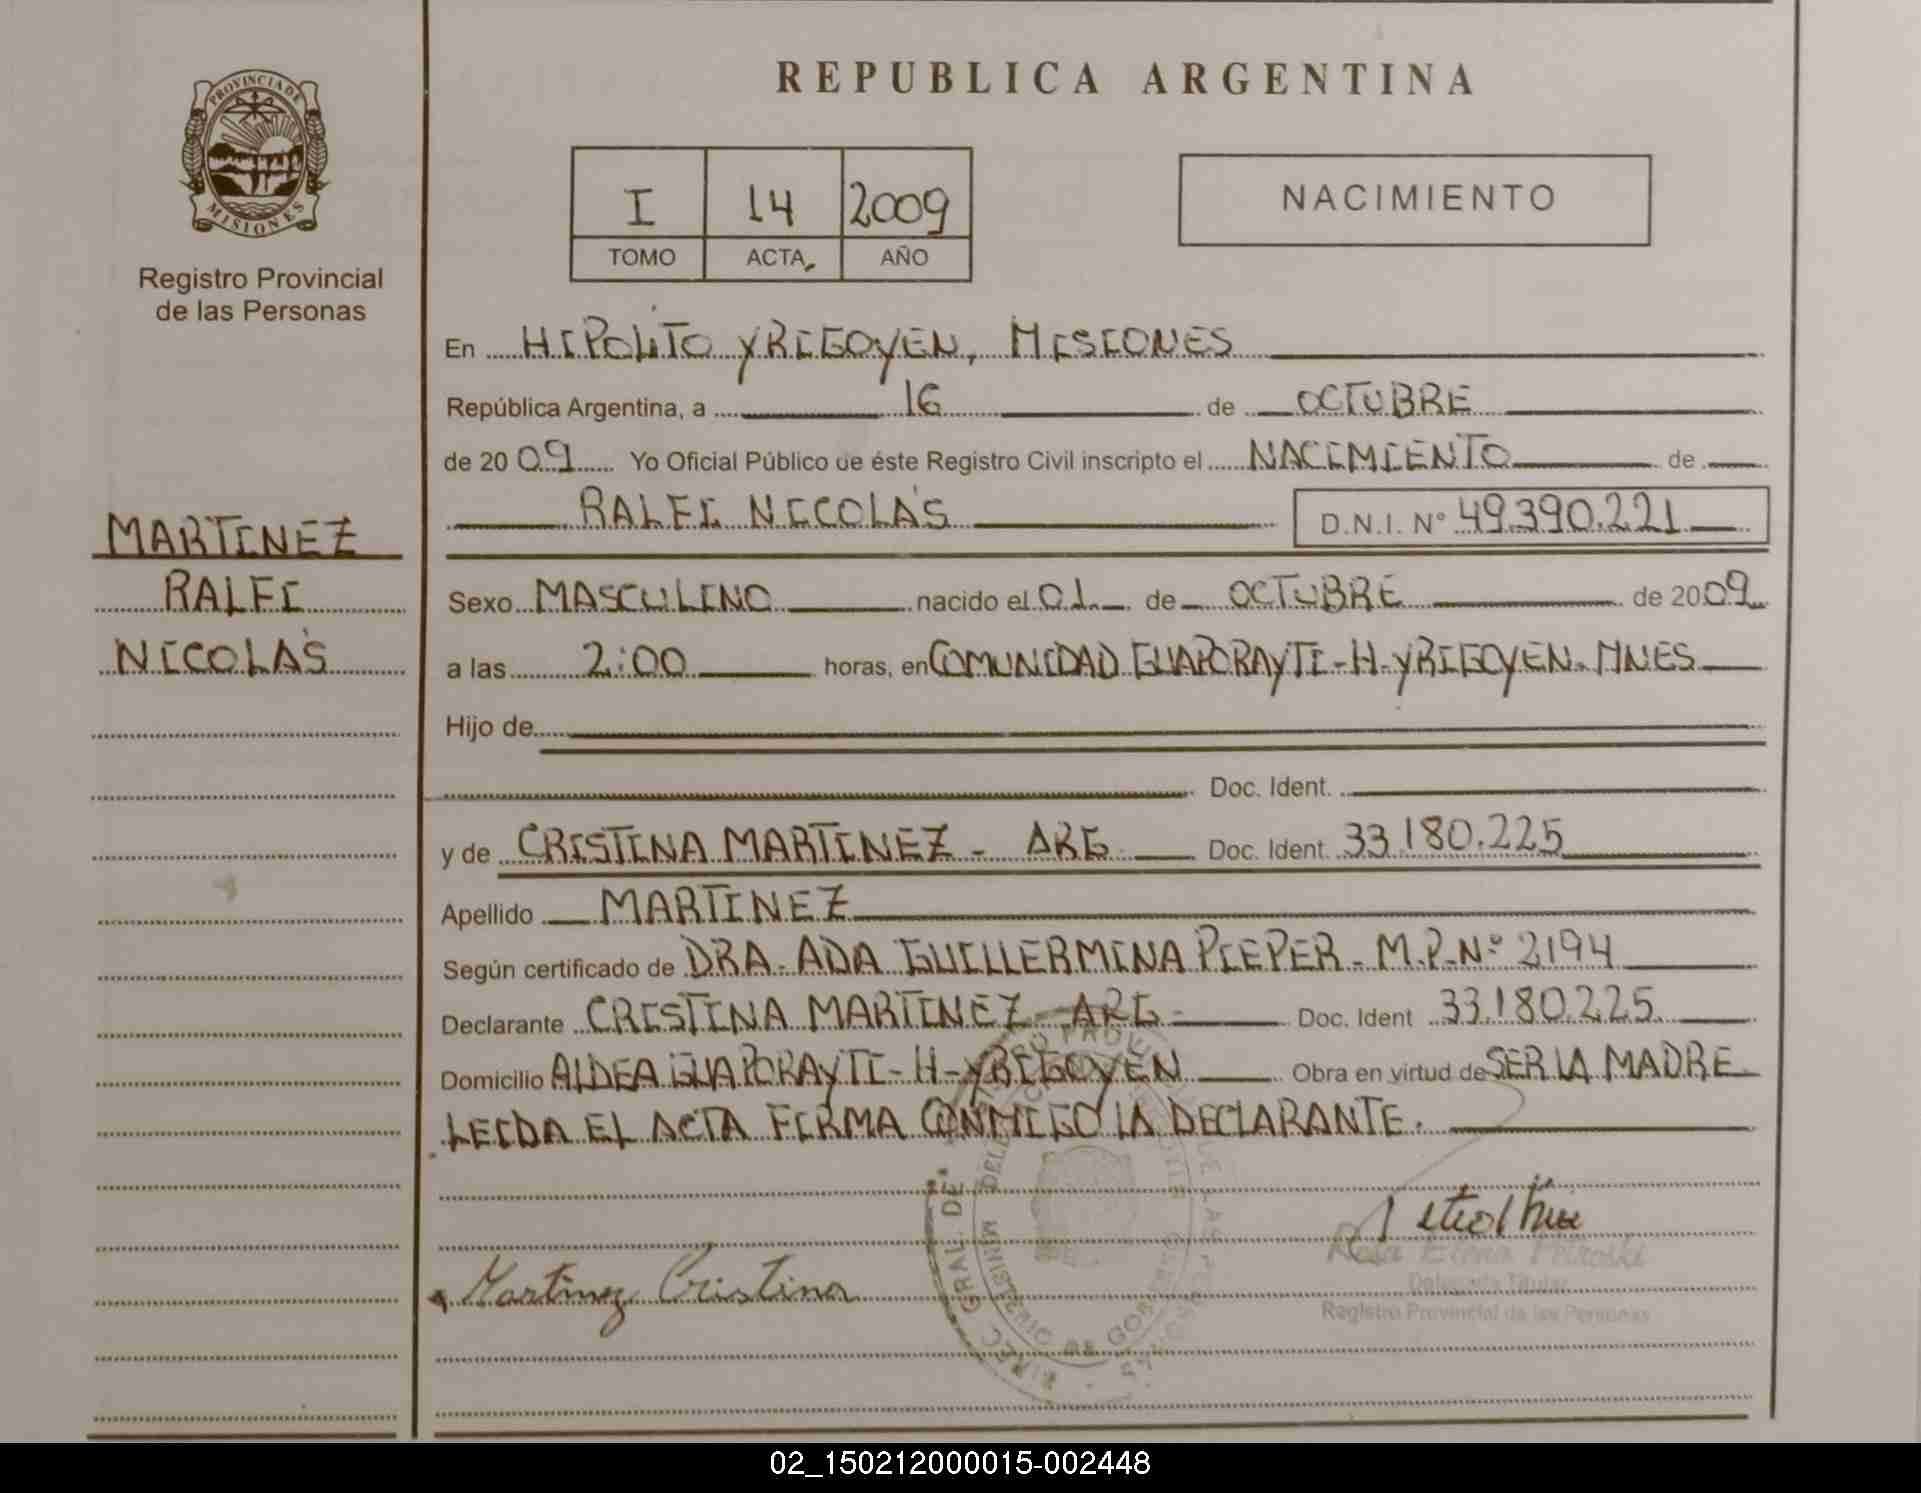 PROVINCIA DE
MISIONES
Registro Provincial
de las Personas
MARTINEZ
RALFI
NICOLAS
REPUBLICA ARGENTINA
I 14 2009
TOMO ACTA AÑO
NACIMIENTO
En HIPOLITO YRIGOYEN, MISIONES
República Argentina, a 16 de OCTUBRE
de 20 09 Yo Oficial Público de éste Registro Civil inscripto el NACIMIENTO de
RALFI NICOLAS D.N.I. N° 49.390.221
Sexo MASCULINO nacido el 01 de OCTUBRE de 2009
a las 2:00 horas, en COMUNIDAD GUAPORAYTI-H-YRIGOYEN. MNES
Hijo de
Doc. Ident.
y de CRISTINA MARTINEZ - ARG Doc. Ident. 33.180.225
Apellido MARTINEZ
Según certificado de DRA. ADA GUILLERMINA PIEPER - M.P.N° 2194
Declarante CRISTINA MARTINEZ - ARG - Doc. Ident 33.180.225
Domicilio ALDEA GUAPORAYTI-H-YRIGOYEN Obra en virtud de SER LA MADRE
LEIDA EL ACTA FIRMA CONMIGO LA DECLARANTE.
Martinez Cristina
Rosa Elena
Delegada Titular
Registro Provincial de las Personas
GRAL. DE
02_150212000015-002448